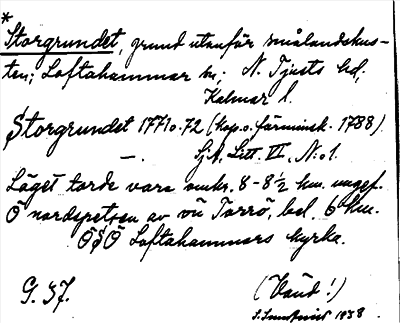 *
Storgrundet, grund utanför smålandskus-
ten; Loftahammar sn; N. Tjusts hd,
Kalmar l.
Storgrundet 1771 o. 72 (Kop. o. förminsk. 1788)
— . SjA, Litt. VI, N:o 1.
Läget torde vara omkr. 8-8½ km. ungef.
Ö nordspetsen av Torrö, bel. 6 km.
ÖSÖ Loftahammars kyrka.
G. 37.
(Vänd!)
1938.